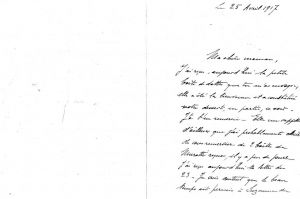 Le 25 Avril 1917
Ma chère maman,
J'ai reçu, aujourd'hui la petite
boîte de dattes que tu m'as envoyée;
elle a été la bienvenue et a constitué
notre dessert, en partie, ce soir.
Je t'en remercie.
d'ailleurs que j'ai probablement
de te remercier de
reçue, il y a peu de jours.
J'ai reçu aujourd'hui ta lettre du
23. Je suis content que le beau
temps ait permis à